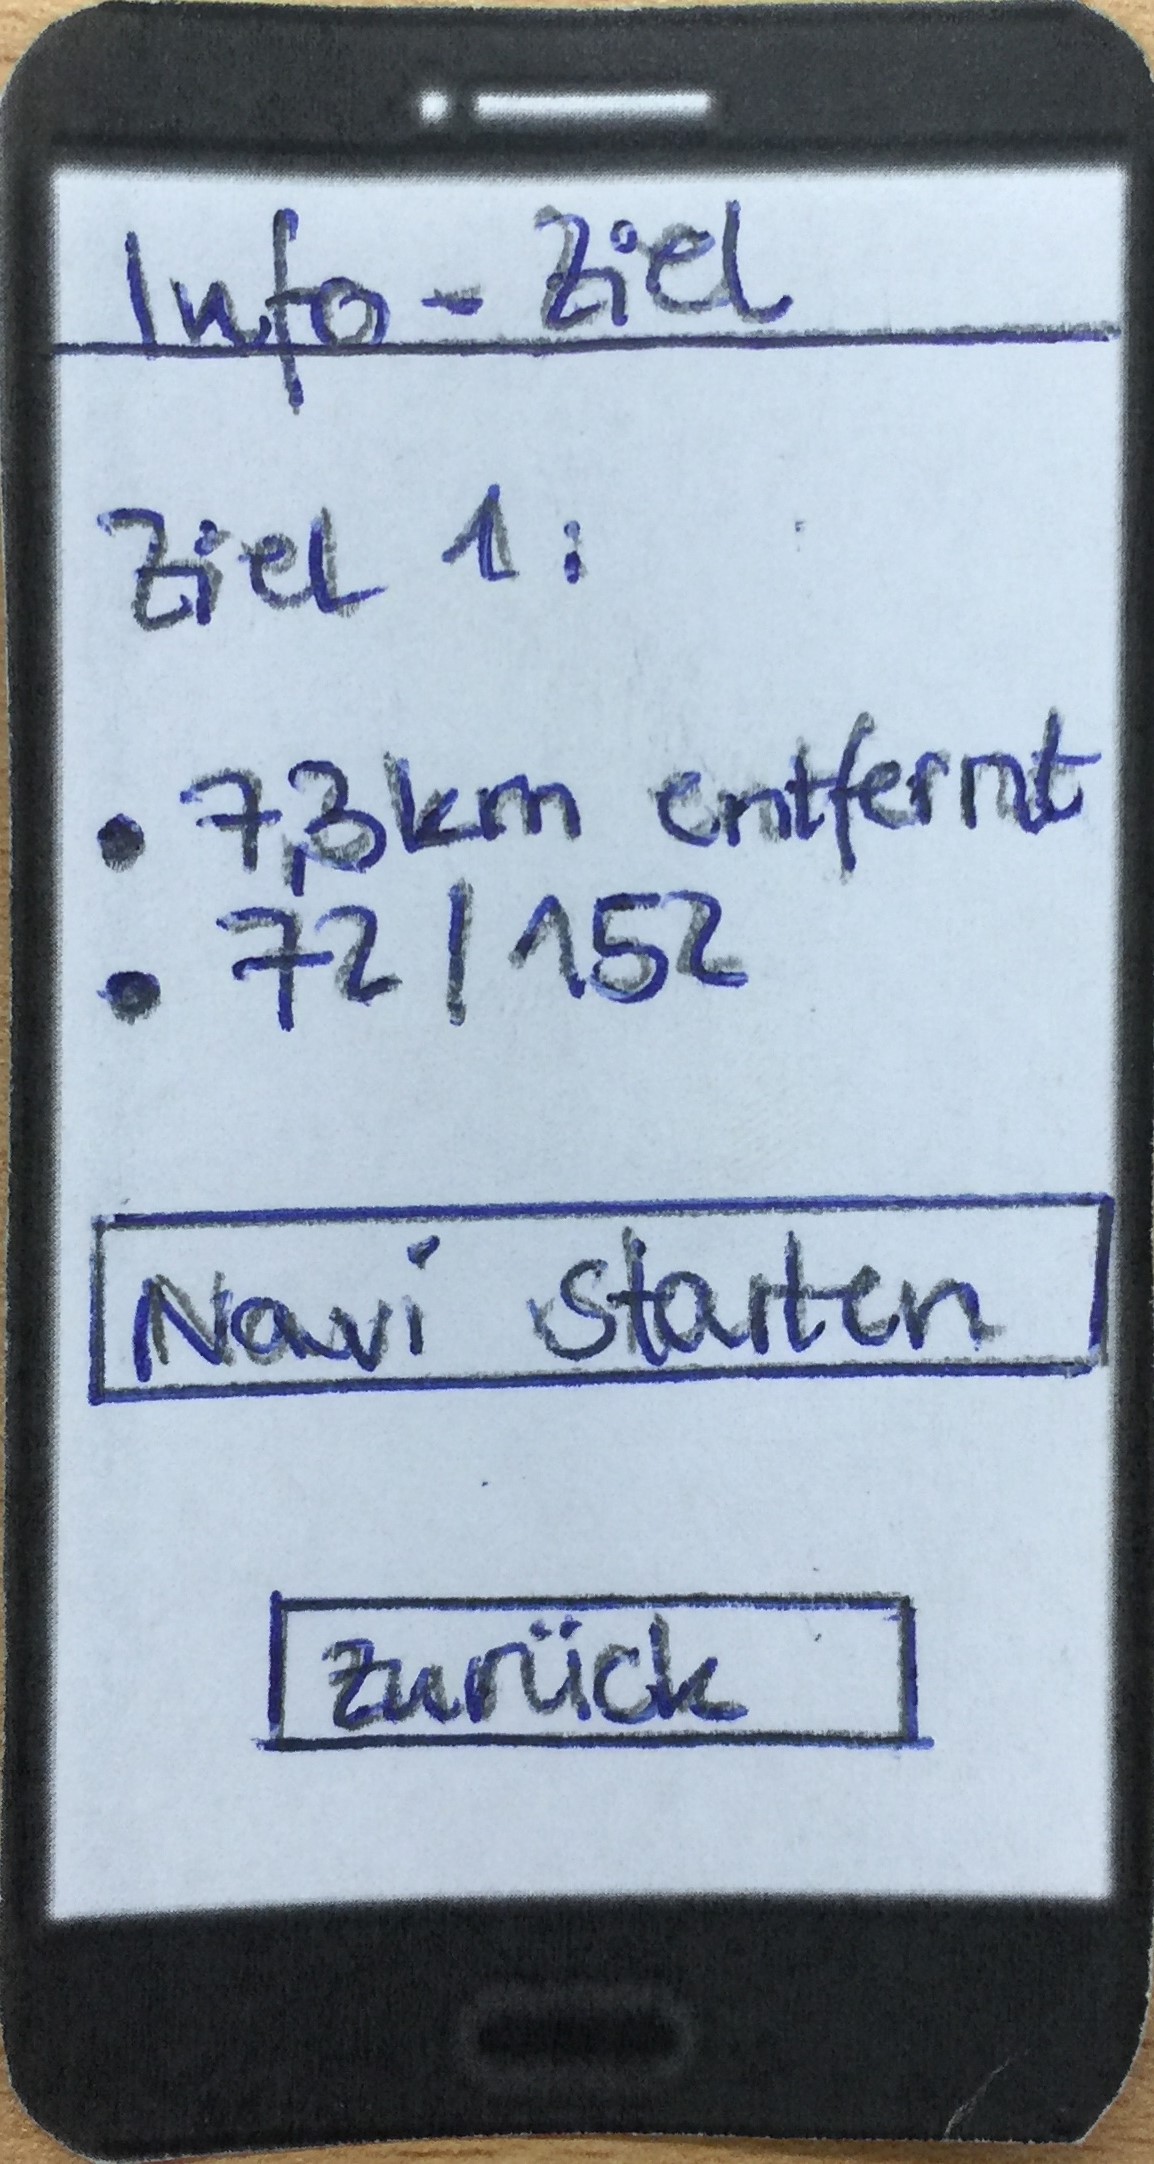 Info - Ziel
Ziel 1:
• 7,3km entfernt
• 72 | 152
Navi starten
zurück